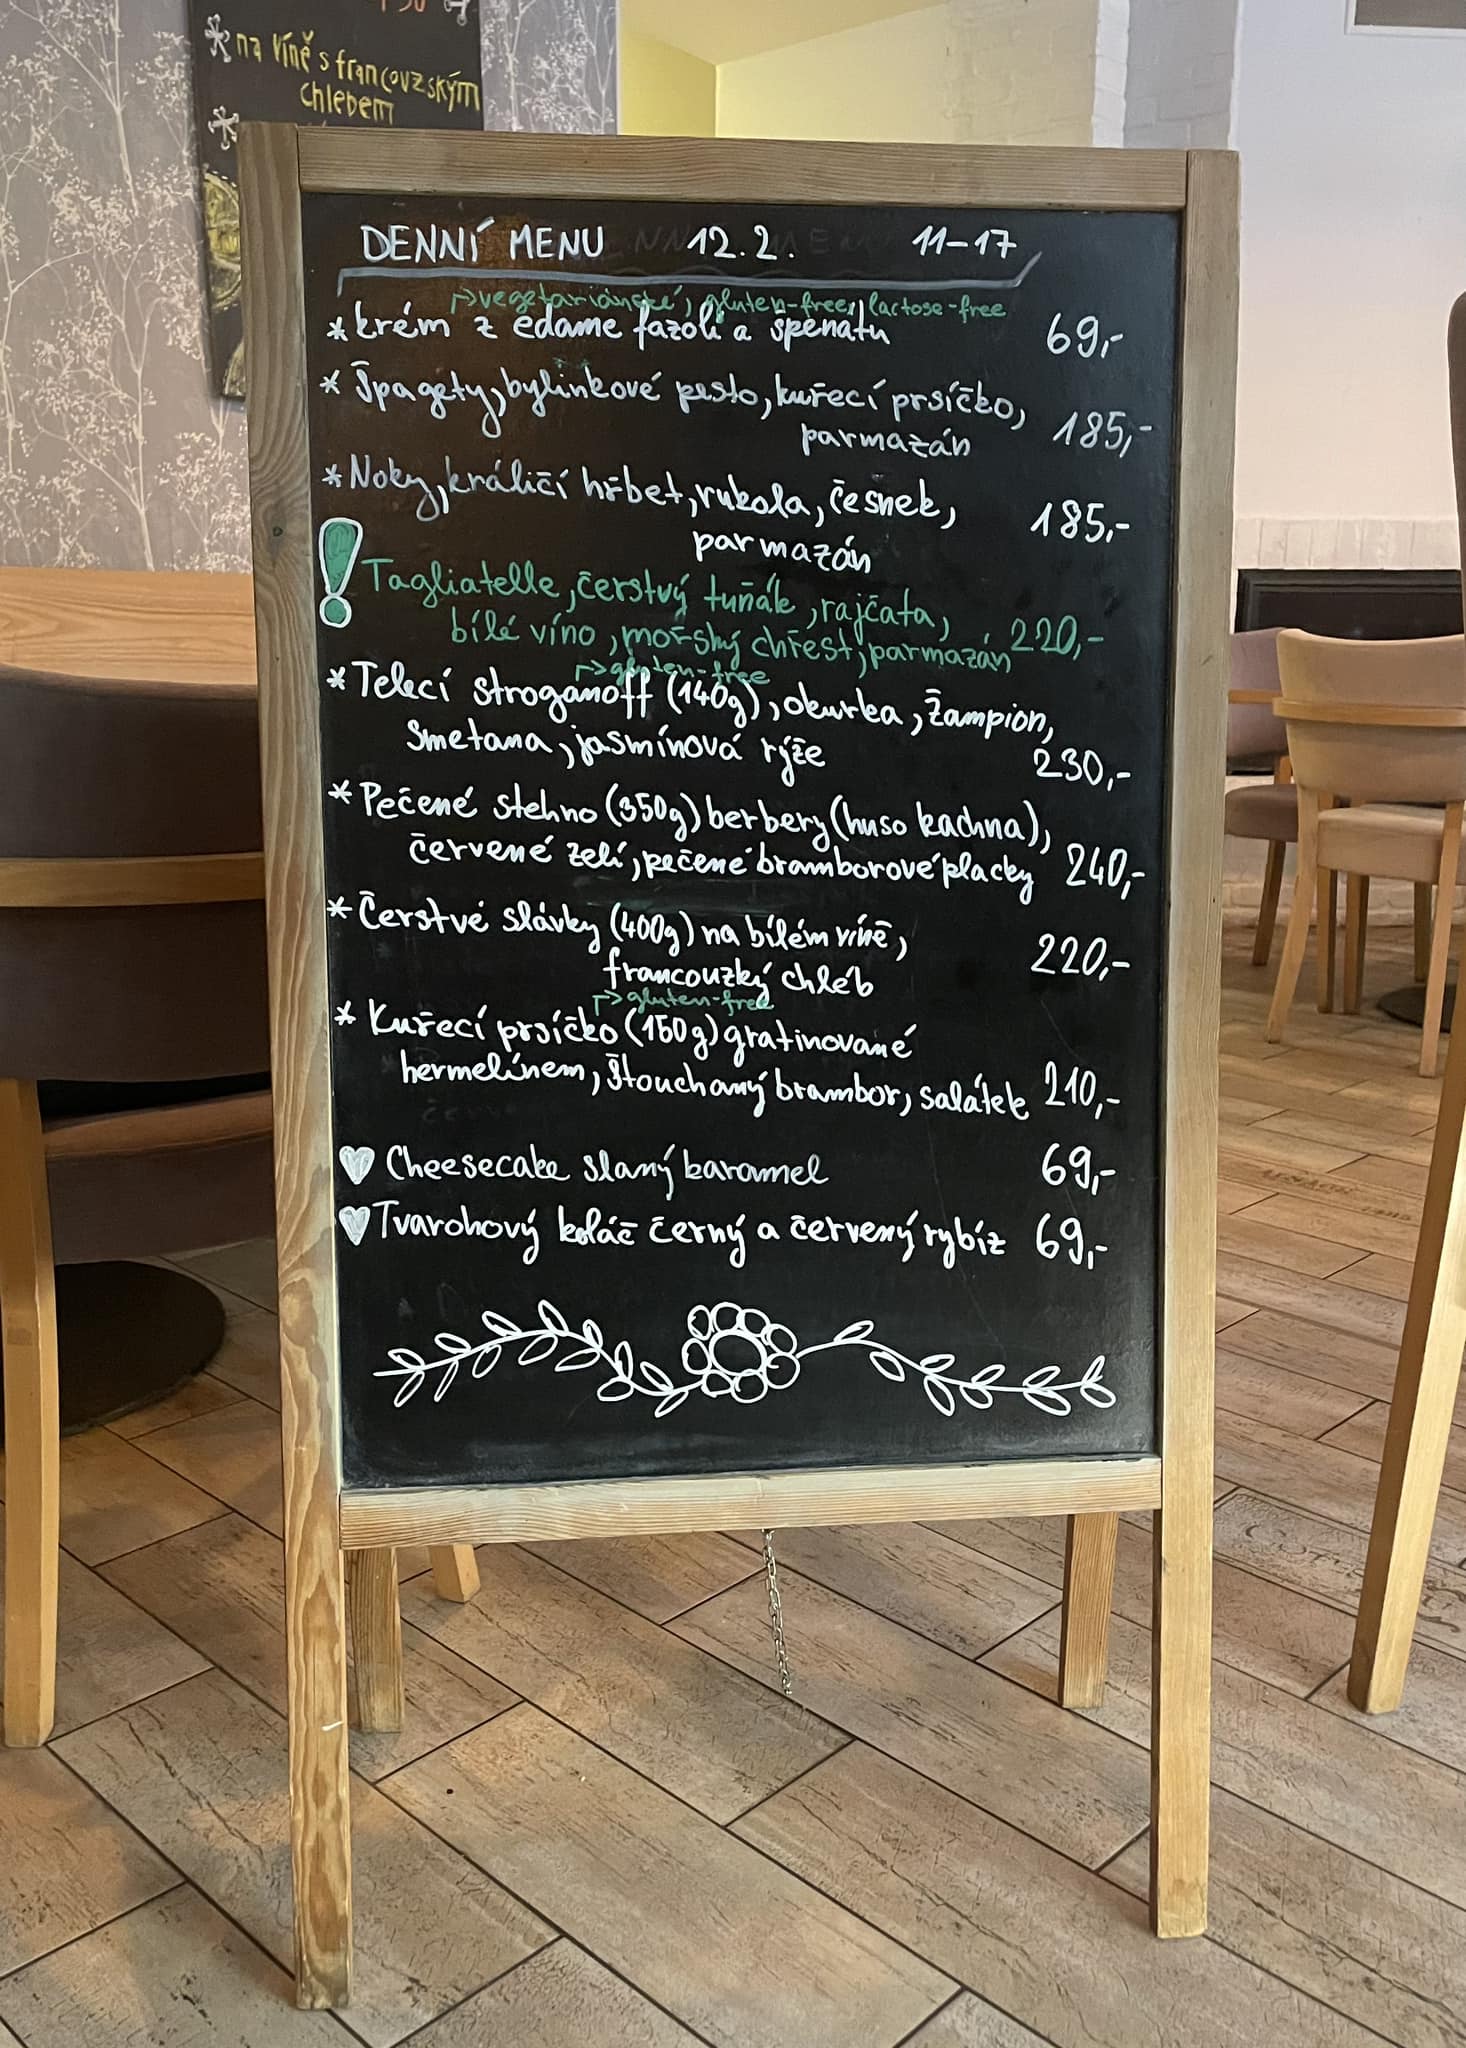 na víně s francouzským
chlebem
DENNÍ MENU 12.2. 11-17
↱>vegetariánské, gluten-free, lactose-free
*krém z edame fazolí a špenátu 69,-
* Špagety, bylinkové pesto, kuřecí prsíčko,
parmazán 185,-
*Noky, králičí hřbet, rukola, česnek,
parmazán 185,-
! Tagliatelle, čerstvý tuňák, rajčata,
bílé víno, mořský chřest, parmazán 220,-
↱>gluten-free
*Telecí stroganoff (140g), okurka, žampion,
smetana, jasmínová rýže 230,-
*Pečené stehno (350g) berbery (huso kachna),
červené zelí, pečené bramborové placky 240,-
*Čerstvé slávky (400g) na bílém víně,
francouzký chléb 220,-
↱>gluten-free
* Kuřecí prsíčko (150g) gratinované
hermelínem, štouchaný brambor, salátek 210,-
♥ Cheesecake slaný karamel 69,-
♥ Tvarohový koláč černý a červený rybíz 69,-